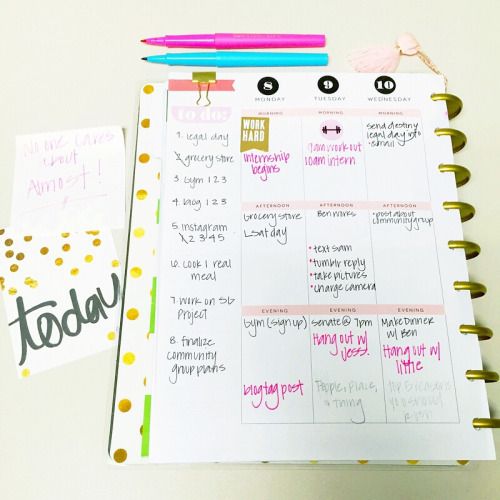 No one cares
about
Almost!
today
to do:
1. legal day
2. grocery store
3. Gym 1 2 3
4. blog 1 2 3
5. Instagram
1 2 3 4 5
6. Cook 1 real
meal
7. Work on SG
Project
8. finalize
community
group plans
8
MONDAY
9
TUESDAY
10
WEDNESDAY
MORNING
WORK
HARD
Internship
begins
MORNING
9am work out
10am intern
MORNING
send destiny
legal day info
- email
AFTERNOON
Grocery store
Lsat day
AFTERNOON
Ben works
• text sam
• tumblr reply
• take pictures
• charge camera
AFTERNOON
• post about
community group
EVENING
Gym (sign up)
blog tag post
EVENING
Senate @ 7pm
Hang out w/
Jess!
People, Place,
Thing
EVENING
Make Dinner
w/ Ben
Hang out w/
little
Top 5 reasons
you should